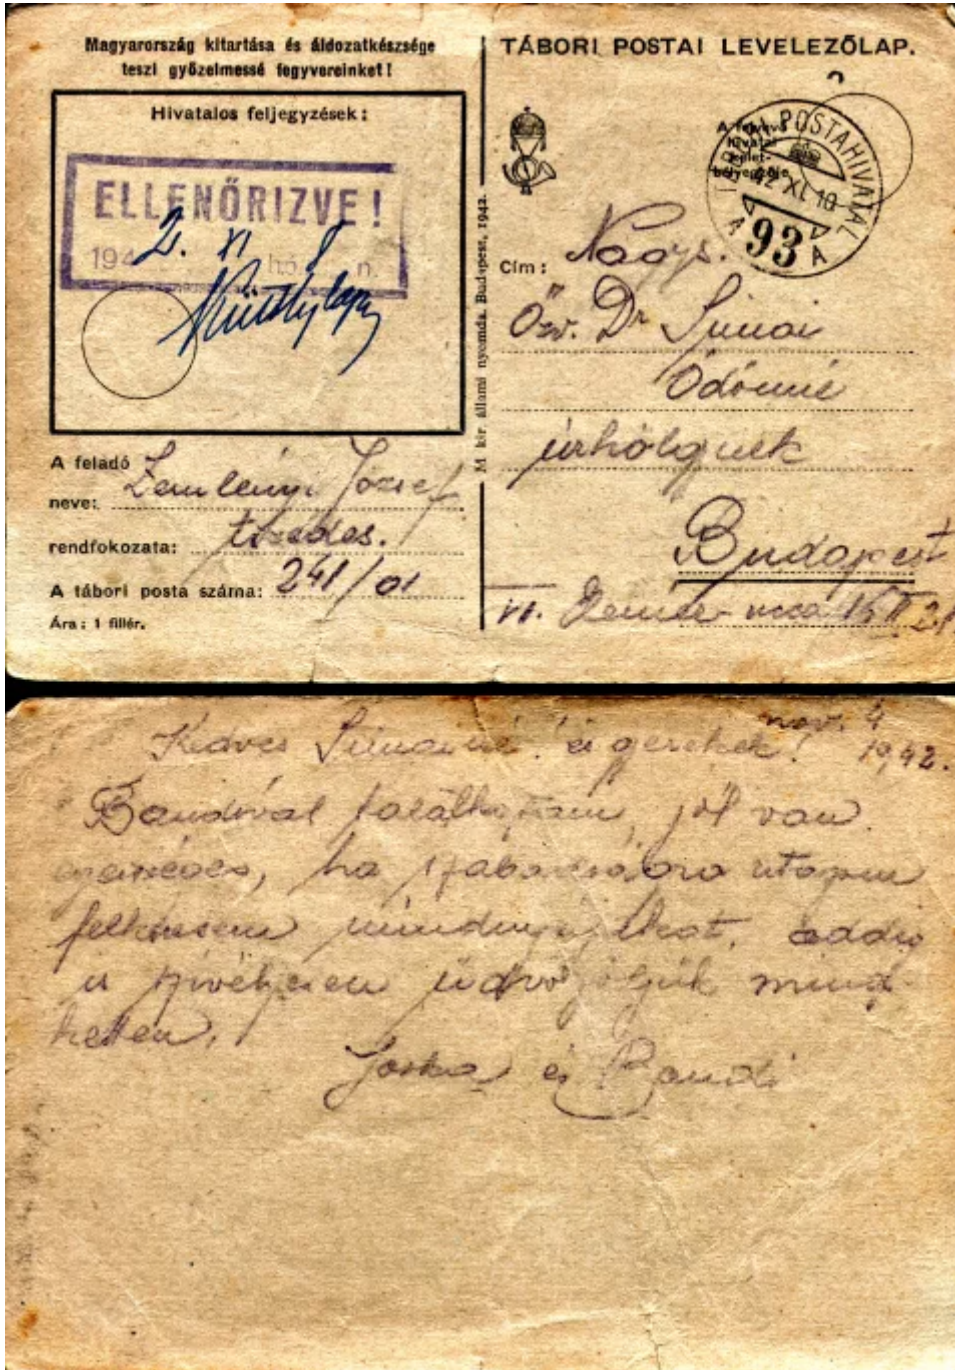 Magyarország kitartása és áldozatkészsége
teszi győzelmessé fegyvereinket!
Hivatalos feljegyzések:
ELLENŐRIZVE!
194 2. XI hó 8 n.
A feladó
neve: Zemlényi József
rendfokozata: tizedes.
A tábori posta száma: 241/01
Ára: 1 fillér.
M. kir. állami nyomda. Budapest, 1942.
TÁBORI POSTAI LEVELEZŐLAP.
A felvevő
hivatal
kelet-
bélyegzője
TÁBORI POSTAHIVATAL
42 XI. 10
A 93 A
Cím: Nags.
Özv. Dr Simai
Ödönné
úrhölgynek
Budapest
VI. ucca 15 II 21.
nov. 4
Kedves Simainé! és gyerekek! 1942.
Bandival találkoztam, jól van
egészséges, ha szabadságra utazom
felkeresem mindnyájukat, addig
is szívélyesen üdvözöljük mind
ketten,
Joska és Bandi